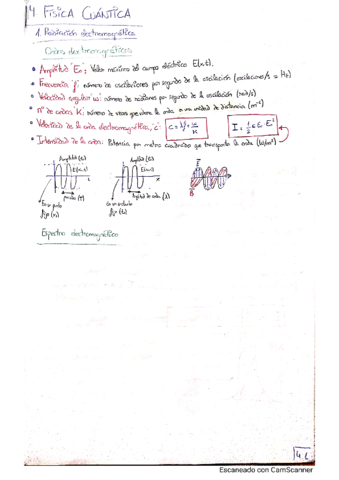 4 FÍSICA CUÁNTICA
1. Radiación electromagnética
Ondas electromagnéticas
• Amplitud E₀: Valor máximo del campo eléctrico E(x,t).
• Frecuencia f: número de oscilaciones por segundo de la oscilación (oscilaciones/s = Hz)
• Velocidad angular ω: número de radianes por segundo de la oscilación (rad/s)
• nº de ondas K: número de veces que vibra la onda a una unidad de distancia (m⁻¹)
• Velocidad de la onda electromagnética, c:
• Intensidad de la onda: Potencia por metro cuadrado que transporta la onda (W/m²)
Amplitud (E₀)
E(x,t)
t
periodo (T)
En un punto
fijo (x₀)
Amplitud (E₀)
E(x,t)
x
longitud de onda (λ)
En un instante
fijo (t₀)
E
B
Espectro electromagnético
4.1
Escaneado con CamScanner